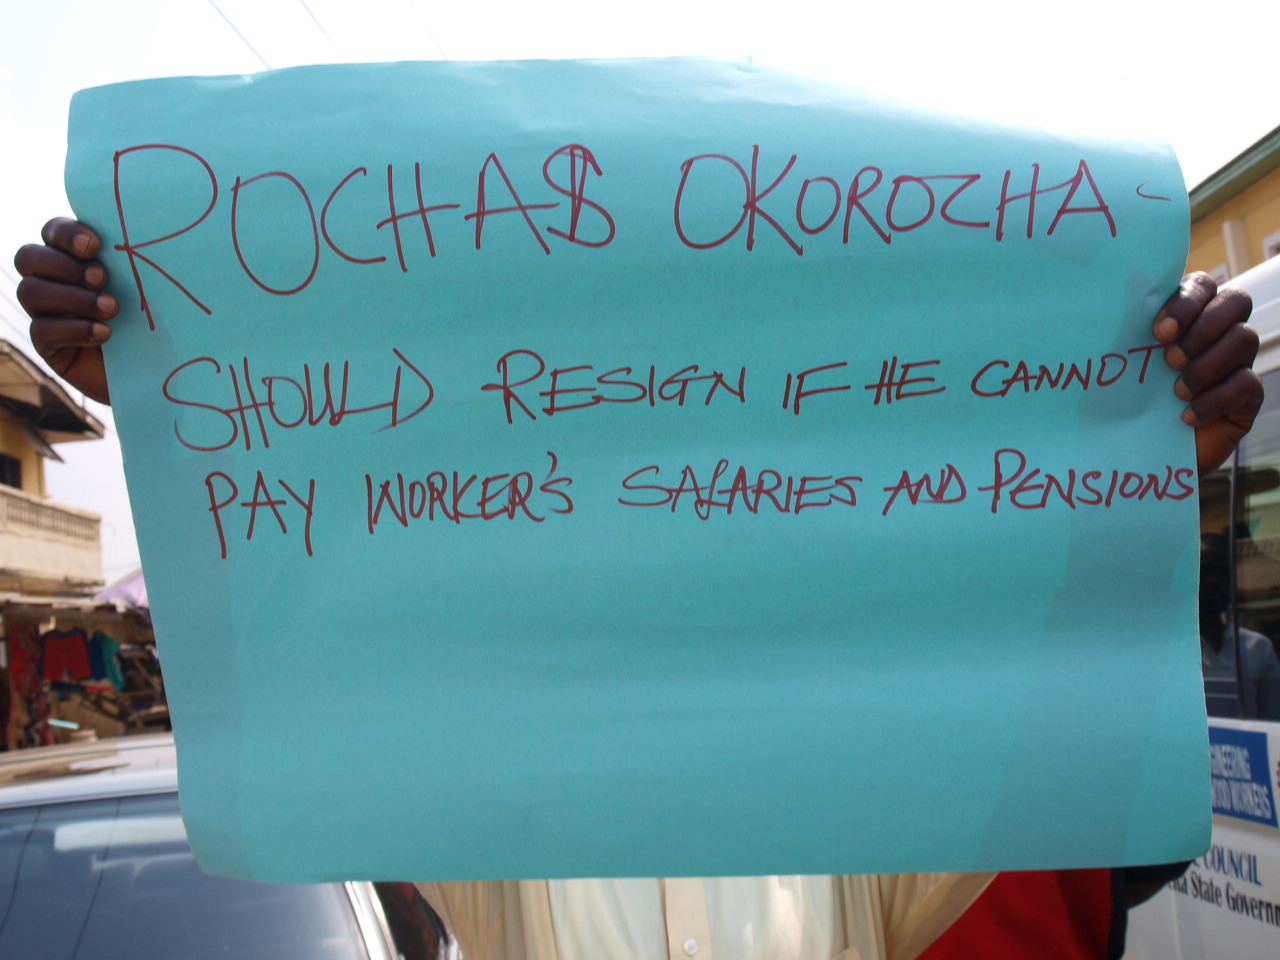 ROCHAS OKOROCHA-
SHOULD RESIGN IF HE CANNOT
PAY WORKER'S SALARIES AND PENSIONS
WORKERS
COUNCIL
State